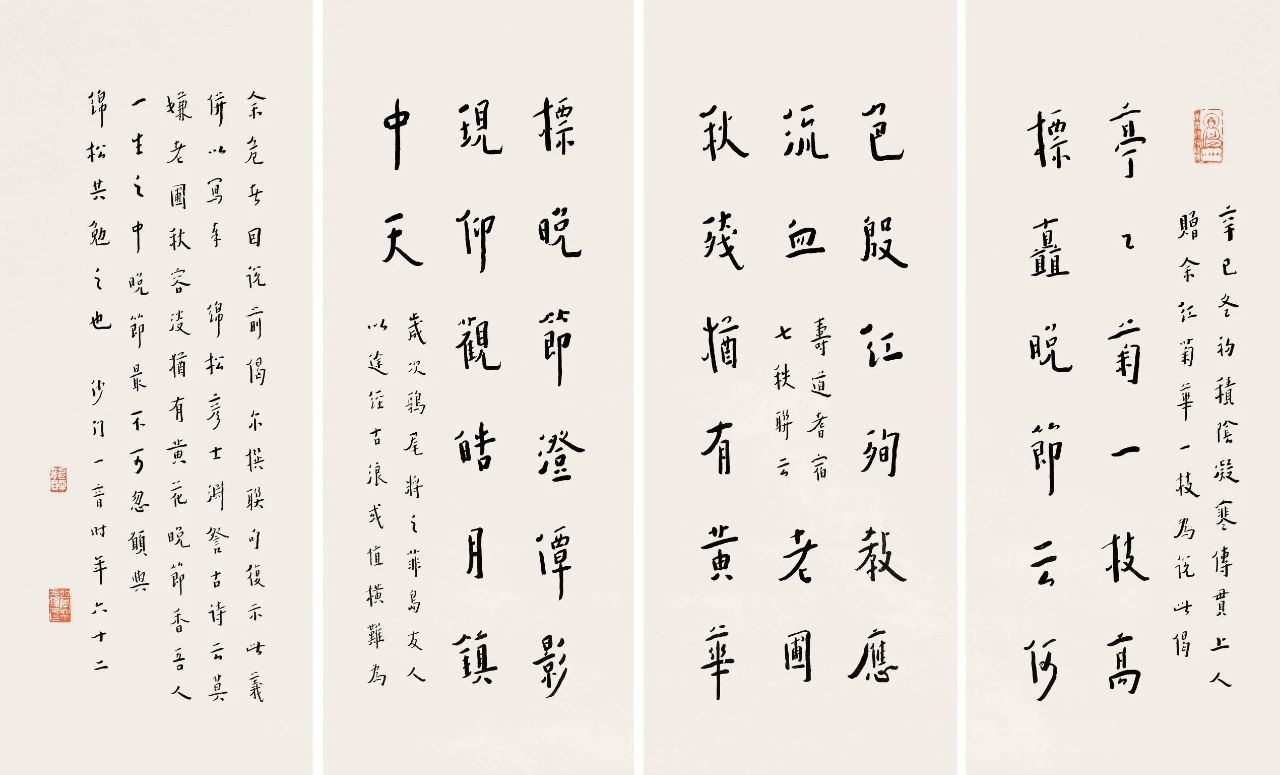 辛巳冬初積陰凝寒傳貫上人
贈余紅菊華一枝為說此偈
亭亭菊一枝高
標矗晚節云何
色殷紅殉教應
流血
壽道耆宿
七秩聯云
老圃
秋殘猶有黃華
標晚節澄潭影
現仰觀皓月鎮
中天
歲次鶉尾將之菲島友人
以途徑古浪或值橫難為
余危者因說前偈尔撰聯句復示此義
併以寫奉 綿松彥士淵詧古詩云莫
嫌老圃秋容淡猶有黃花晚節香吾人
一生之中晚節最不可忽願與
綿松共勉之也 沙门一音时年六十二